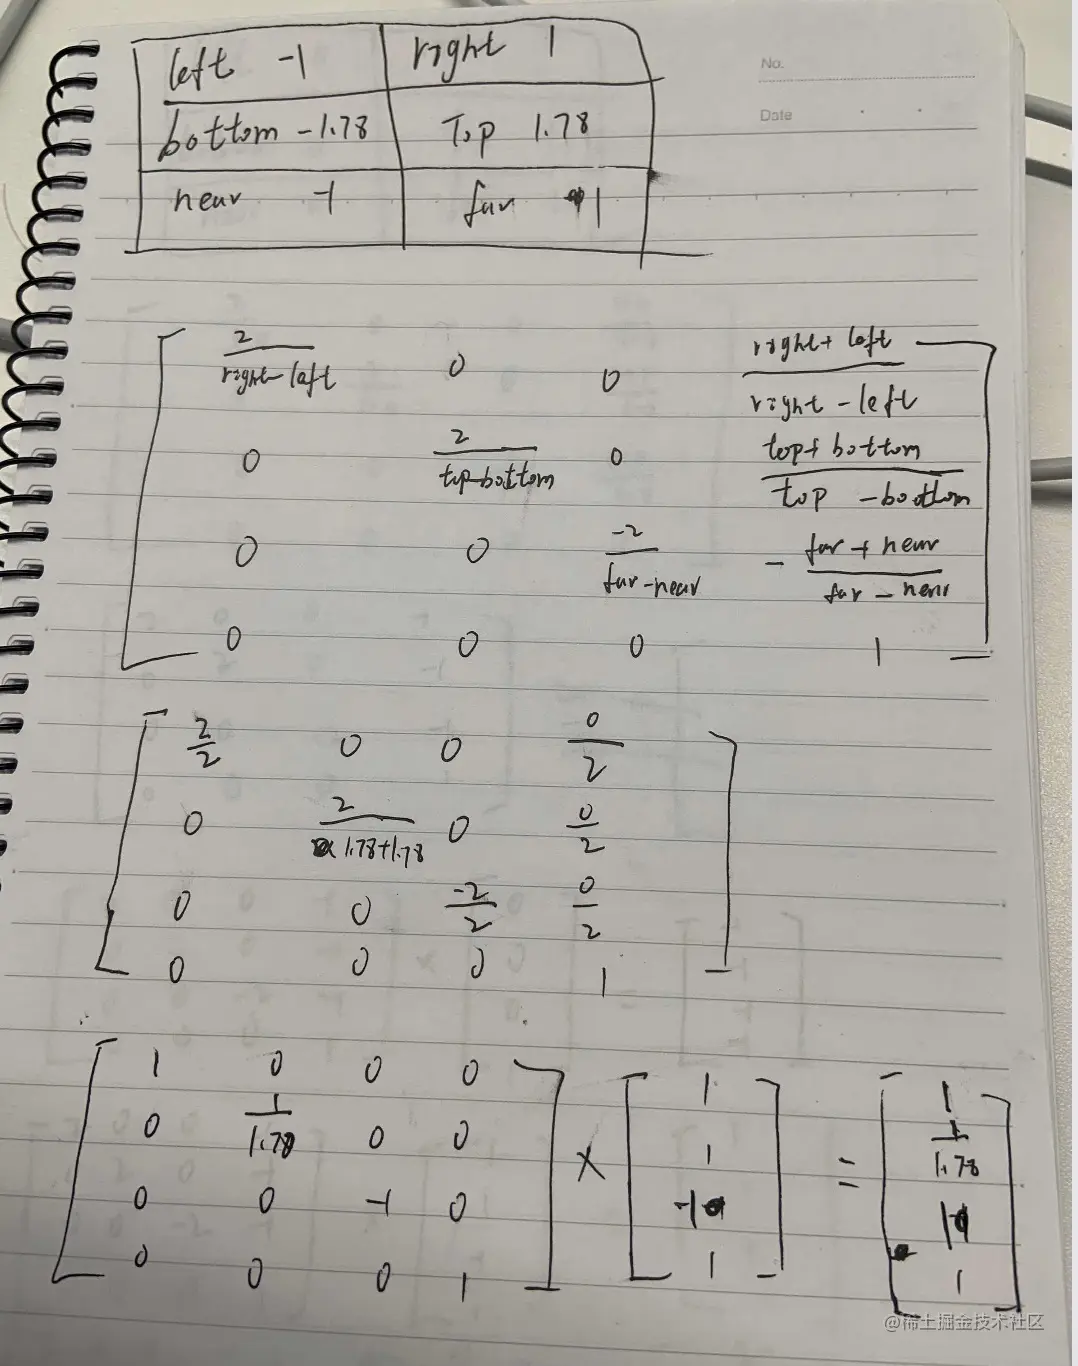 left -1 right 1
No.
bottom -1.78 Top 1.78
Date
near -1 far 1
2 / right-left 0 0 right+left / right-left
0 2 / top-bottom 0 top+bottom / top-bottom
0 0 -2 / far-near - far+near / far-near
0 0 0 1
2/2 0 0 0/2
0 2 / 1.78+1.78 0 0/2
0 0 -2/2 0/2
0 0 0 1
1 0 0 0 1 1
0 1/1.78 0 0 × 1 = 1/1.78
0 0 -1 0 -1 1
0 0 0 1 1 1
@稀土掘金技术社区